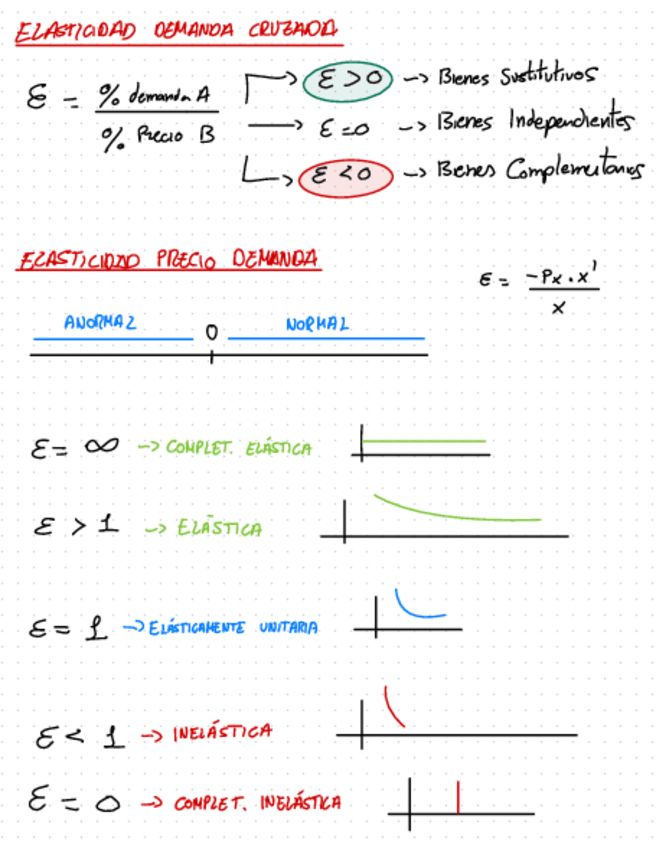 ELASTICIDAD DEMANDA CRUZADA
ε = % demanda A / % Precio B
ε > 0 -> Bienes Sustitutivos
ε = 0 -> Bienes Independientes
ε < 0 -> Bienes Complementarios
ELASTICIDAD PRECIO DEMANDA
ε = -Px . x' / x
ANORMAL 0 NORMAL
ε = ∞ -> COMPLET. ELÁSTICA
ε > 1 -> ELÁSTICA
ε = 1 -> ELÁSTICAMENTE UNITARIA
ε < 1 -> INELÁSTICA
ε = 0 -> COMPLET. INELÁSTICA